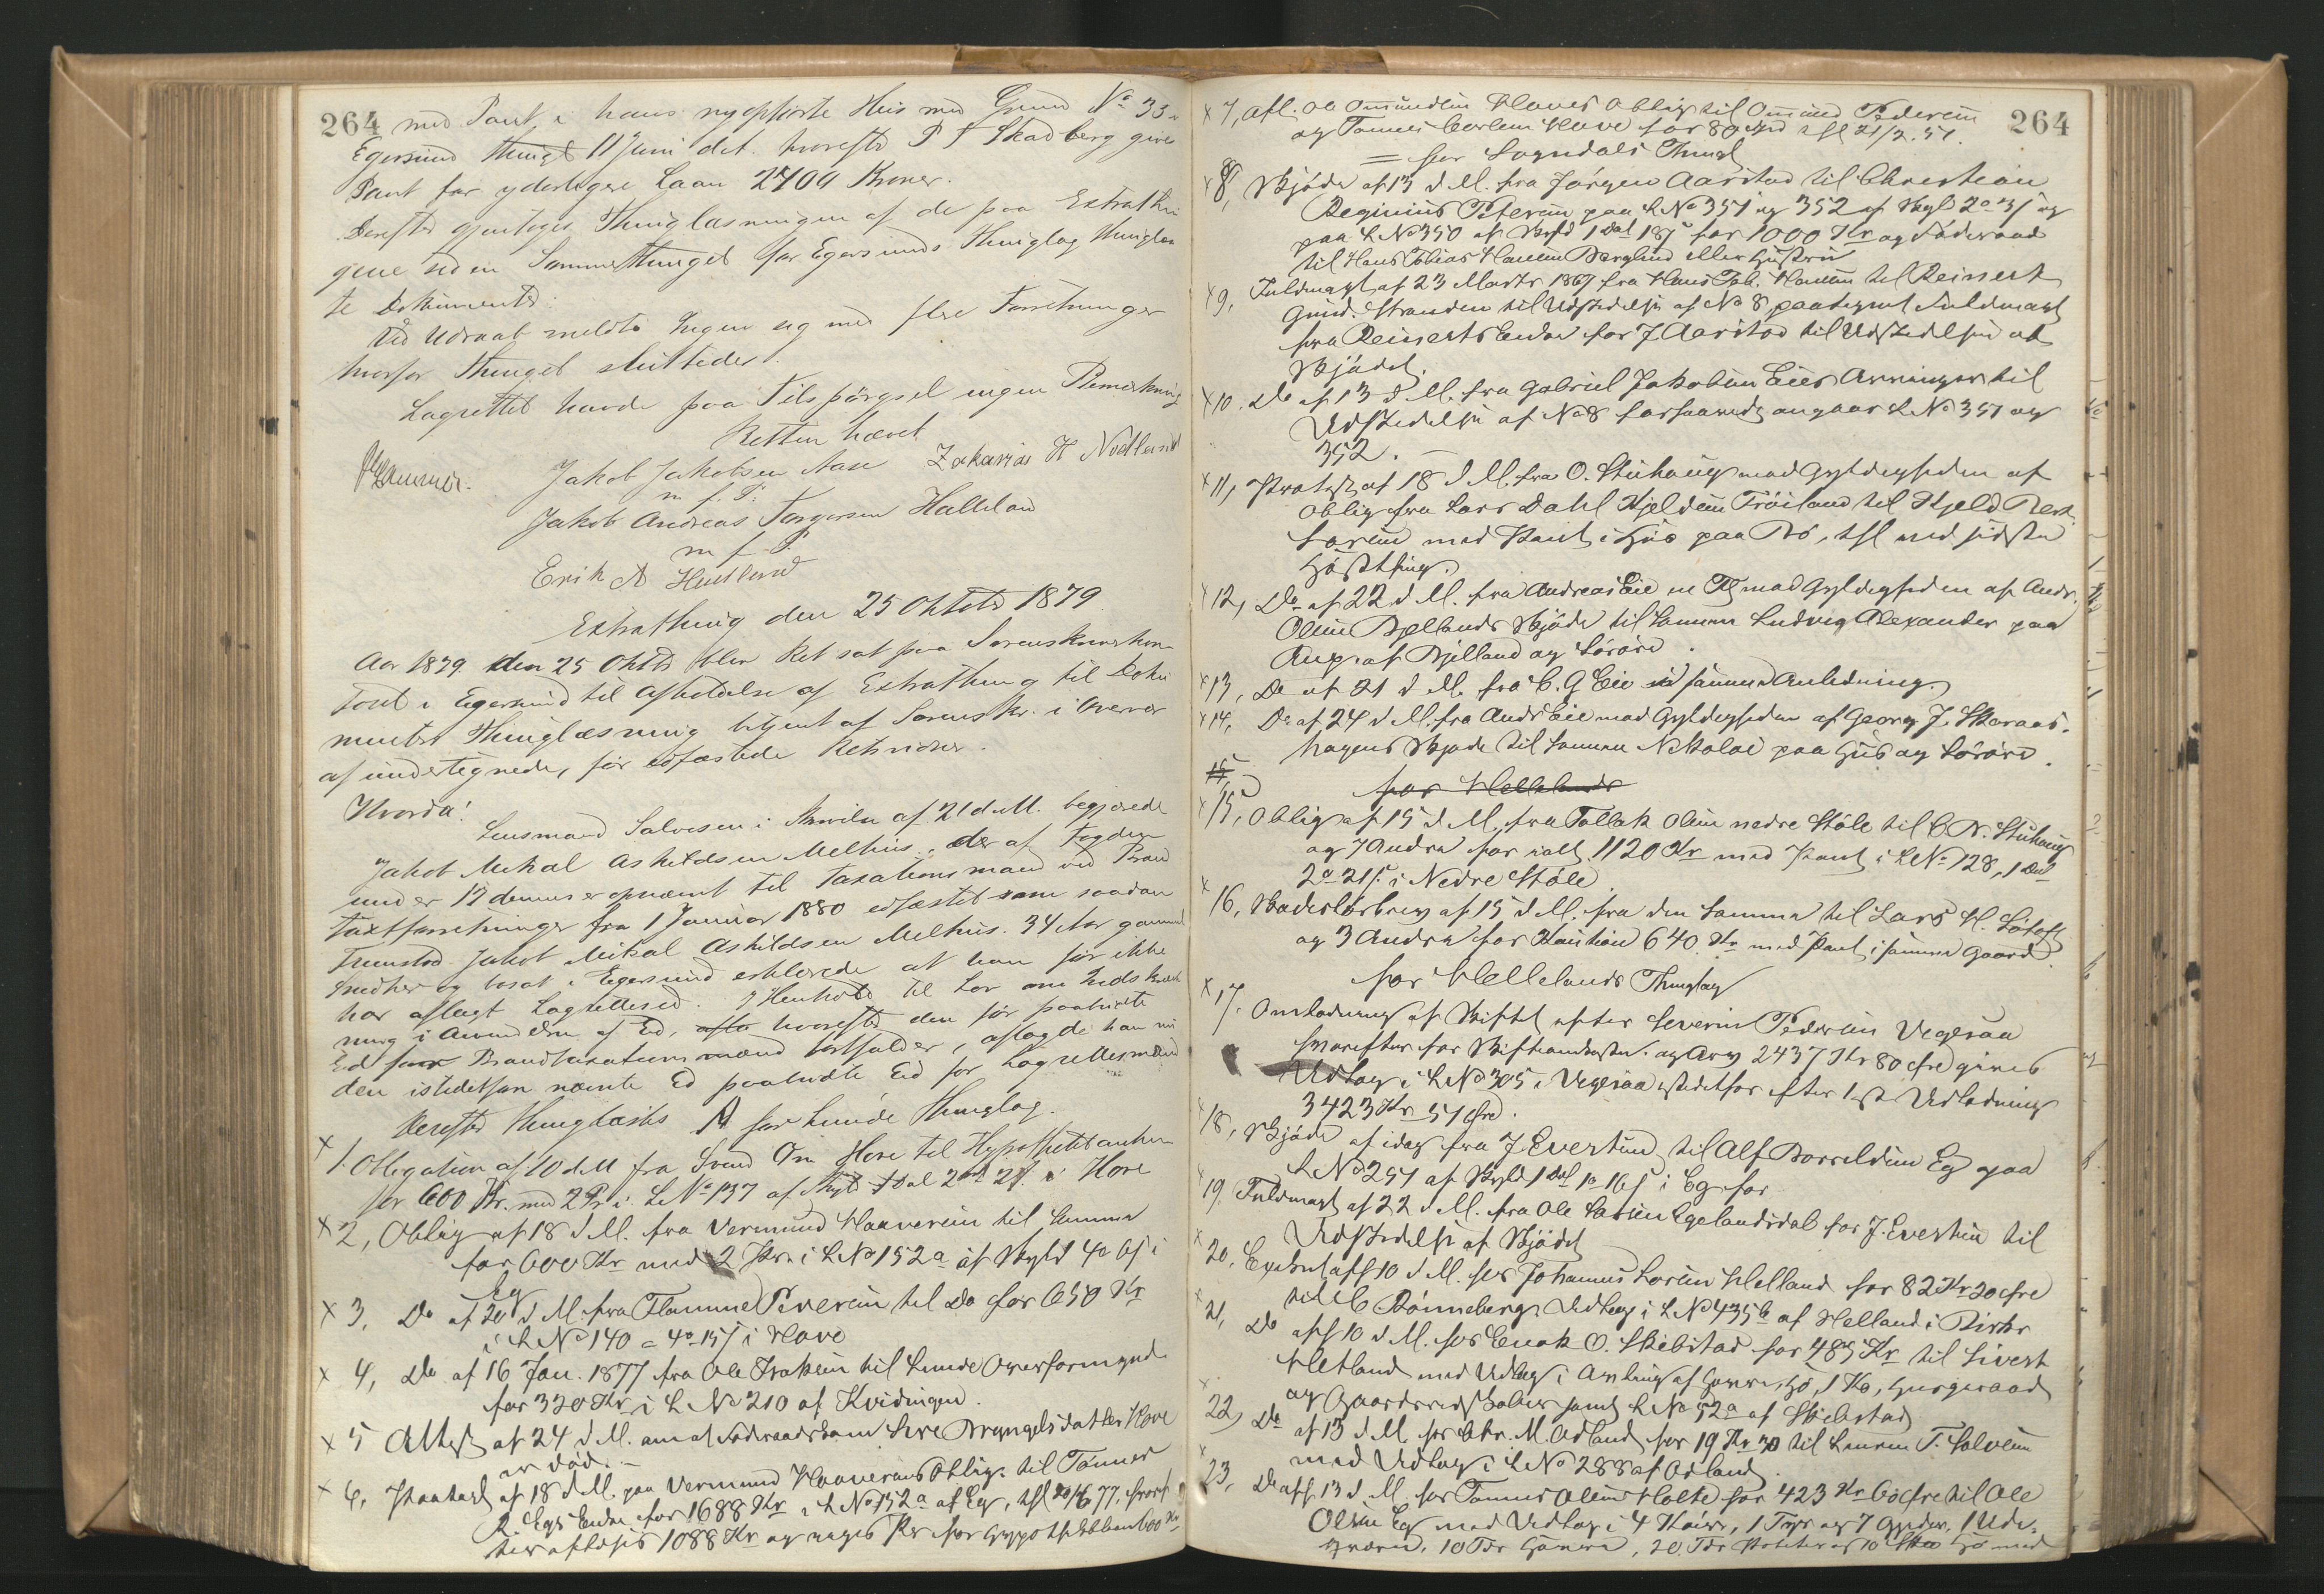 264 med Pant i hans nyopførte Hus med Grund No 33
Egersund thingl 11 Juni det. hvorefter P T Skadberg giver
Pant for yderligere Laan 2700 Kroner.
Derefter gjentoges Thinglæsningen af de paa Extrathin
gene siden Sommerthinget for Egersunds Thinglag thinglæs
te Dokumenter.
Ved Udraab meldte Ingen sig med flere Forretninger
hvorfor Thinget sluttedes.
Lagrettet havde paa Tilspørgsel ingen Bemærkning
Retten hævet
Jakob Jakobsen Aase Zakarias H Nodland
m f P:
Jakob Andreas Torgersen Halleland
m f P:
Erik A
Extrathing den 25 Oktober 1879
Aar 1879 den 25 Oktbr blev Ret sat paa Sorenskriverkon
toret i Egersund til Afholdelse af Extrathing til Doku
menters Thinglæsning betjent af Sorenskr. i Overvær
af undertegnede, før edfæstede Retsvidner.
Hvorda!
Lensmand Salvesen i Skrivelse af 21 d M. begjærede
Jakob Mikal Askildsen Melhus, der af Fogden
under 17 dennes er opnævnt til Taxationsmand ved Brand
taxtforretninger fra 1 Januar 1880 edfæstet som saadan
Fremstod Jakob Mikal Askildsen Melhus. 34 Aar gammel
Snedker og bosat i Egersund erklærede at han før ikke
har aflagt Lagrettesed. I Henhold til Lov om Indskrænk
ning i Anvendelsen af Ed, hvorefter den før paabudte
Ed for Brandtaxationsmænd bortfalder, aflagde han nu
den istedetfor nævnte Ed paabudte Ed for Lagrettesmænd
Derefter thinglæstes A for Lunde Thinglag.
x 1. Obligation af 10 d M fra Svend Hove til Hypothekbanken
for 600 Kr. med 2 Pr i L No 137 af Skyld 2 21 i Hove
x 2, Oblig af 18 d M. fra Vermund Haaversen til Samme
for 600 Kr med 2 Pr. i L No 152a af Skyld 4o 6s i
Eg
x 3. Do af 20 d M. fra Flamme Peversen til Do for 650 Kr
i L No 140 = 4o 15s i Hove
x 4, Do af 16 Jan. 1877 fra Ole Isaksen til Lunde Overformynd.
for 320 Kr i L No 210 af Kvidingen.
x 5 Attest af 24 d M. om at Føderaadskone Sire Bryngelsdatter Hove
er død. –
x 6, Paategn af 18 d M. paa Vermund Haaversens Oblig. til Tønnes
R. Egs Enke for 1688 Kr i L No 152a af Eg, thl 20/6 77, hvoref
ter aflyses 1088 Kr og viges Pr for Hypothekbank 600 Kr
264
x 7, Afl. Ommundsen Hoves Oblig til Ommund Pedersen
og Tønnes Carlsen Hove for 80 Spd thl 21/2. 51.
= for Sogndals Thingl
x 8, Skjøde af 13 d M. fra Jørgen Aarstad til Christian
Reginius Petersen paa L No 351 og 352 af Skyld 2o 3s og
paa L No 350 af Skyld 1 Dal 18s for 1000 Kr og Føderaad
til Hans Tobias Hansen Berglund eller Hustru
x 9, Fuldmagt af 23 Marts 1869 fra Hans Tob. Hansen til Reinert
Gund. Stranden til Udstedelse af No 8, paategnet Fuldmagt
fra Reinerts Enke for J Aarstad til Udstedelse af
Skjødet.
x 10. Do af 13 d M. fra Gabriel Jakobsen Eies Arvinger til
Udstedelse af No 8 forsaavidt angaar L No 351 og
352. –
x 11, Protest af 18 d M. fra O. Stuhaug mod Gyldigheden af
Oblig fra Lars Dahl Kjeldsen Frøiland til Kjeld Rert
Larsen med Pant i Hus paa Rø, thl ved sidste
Høstthing.
x 12, Do af 22 d M. fra Andreas Eie mod Gyldigheden af Andr.
Olsen Bjellands Skjøde til Sønnen Ludvig Alexander paa
Ruse af Bjelland og Løsøre.
x 13, Do af 21 d M. fra C. G Eie i samme Anledning.
x 14. Do af 24 d M. fra Andr Eie mod Gyldigheden af Georg J. Skaraas-
hagens Skjøde til Sønnen Nikolai paa Hus og Løsøre.
15,
for Hellelands
x 15, Oblig af 15 d M. fra Tollak Olsen nedre Støle til C. N. Stuhaug
og 7 Andre for ialt 1120 Kr med Pant i L No 128, 1 Dal
2o 21s. i Nedre Støle
x 16, Skadesløsbrev af 15 d M. fra den Samme til Lars H. Løtoft
og 3 Andre for Kaution 640 Kr med Pant i samme Gaard.
for Hellelands Thinglag
x 17. Omlodning af Skiftet efter Severin Pedersen Vegeraa
hvorefter for Skifteomkostn. og Arv 2437 Kr 80 Øre gives
Udlæg i L No 305 i Vegeraa istedetfor efter 1ste Udlodning
3423 Kr 51 Øre.
18, Skjøde af idag fra J Evertsen til Alf Bovrildsen Eg paa
L No 251 af Skyld 1 Dal 1o 16s i Eg for
19 Fuldmagt af 22 d M. fra Ole Larsen Egelandsdal for J. Evertsen til
Udstedelse af Skjøde
x 20, Exekut afh 10 d M. hos Johannes Larsen Helland for 82 Kr 20 Øre
til C Rønneberg, Udlæg i L No 435b af Helland i Birkr
x 21, Do afh 10 d M. hos Enok O. Skibstad for 485 Kr til Sivert
Hetland med Udlæg i Avling af Havre, Hø, 1 Ko, Husgeraad
og Gaardsredskaber samt L No 52a af Skibstad
x 22, Do af 13 d M. hos Chr. M. Odland for 19 Kr 30 til Lensm T. Salvesen
med Udlæg i L No 288 af Odland.
x 23, Do afh. 13 d M. hos Tønnes Olsens Holte for 423 Kr 60 Øre til Ole
Olsen Eg med Udlæg i 4 Køer, 1 Tyr og 7 Gjeder, 1 Ude-
kværn, 10 Tdr Havre, 20 Tdr Poteter og 10 Hø med